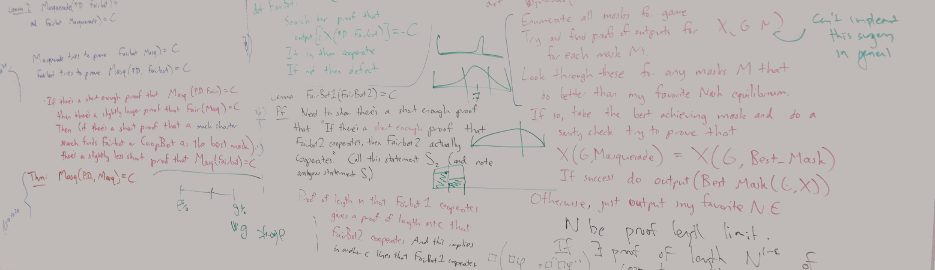 Lemma 2 Masquerade(PD, FairBot)=
and FairBot(Masquerade)=C
Masquerade tries to prove FairBot(Masq)=C
FairBot tries to prove Masq(PD, FairBot)=C
If there's a short enough proof that Masq(PD, Fair)=C
then there's a slightly longer proof that Fair(Masq)=C
Then (if there's a short proof that a much shorter
search finds FairBot or CoopBot as the best mask),
there's a slightly less short proof that Masq(FairBot)=C
Thm: Masq(PD, Masq)=C
def FairBot:
Search for proof that
output[X(PD, FairBot)]=C
If so then cooperate
If not then defect
Lemma FairBot1(FairBot2)=C
Pf Need to show there's a short enough proof
that "If there's a short enough proof that
FairBot2 cooperates, then FairBot2 actually
cooperates." (call this statement S2 (and note
analogous statement S1)
Proof of length n that FairBot1 cooperates
gives a proof of length n+c that
FairBot2 cooperates And this implies
in another c lines that FairBot1 cooperates
Enumerate all masks for game
Try and find proofs of outputs for X, G, M
for each mask M.
Look through these for any masks M that
do better than my favorite Nash equilibrium.
If so, take the best achieving mask and do a
sanity check try to prove that
X(G, Masquerade) = X(G, Best_Mask)
If success do output(Best Mask(G,X))
Otherwise, just output my favorite N.E
Can't implement
this
in general
N be proof length limit.
If ∃ proof of length